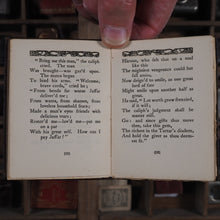 "Bring me this man," the caliph
cried. The man
Was brought—was gaz'd upon.
The mutes began
To bind his arms. "Welcome,
brave cords," cried he;
"From bonds far worse Jaffàr
deliver'd me;
From wants, from shames, from
loveless household fears;
Made a man's eyes friends with
delicious tears;
Restor'd me—lov'd me—put me
on a par
With his great self. How can I
pay Jaffàr?"
Haroun, who felt that on a soul
like this
The mightiest vengeance could but
fall amiss,
Now deign'd to smile, as one great
lord of fate
Might smile upon another half as
great.
He said, "Let worth grow frenzied,
if it will;
The caliph's judgment shall be
master still.
Go: and since gifts thus move
thee, take this gem,
The richest in the Tartar's diadem,
And hold the giver as thou deem-
est fit."